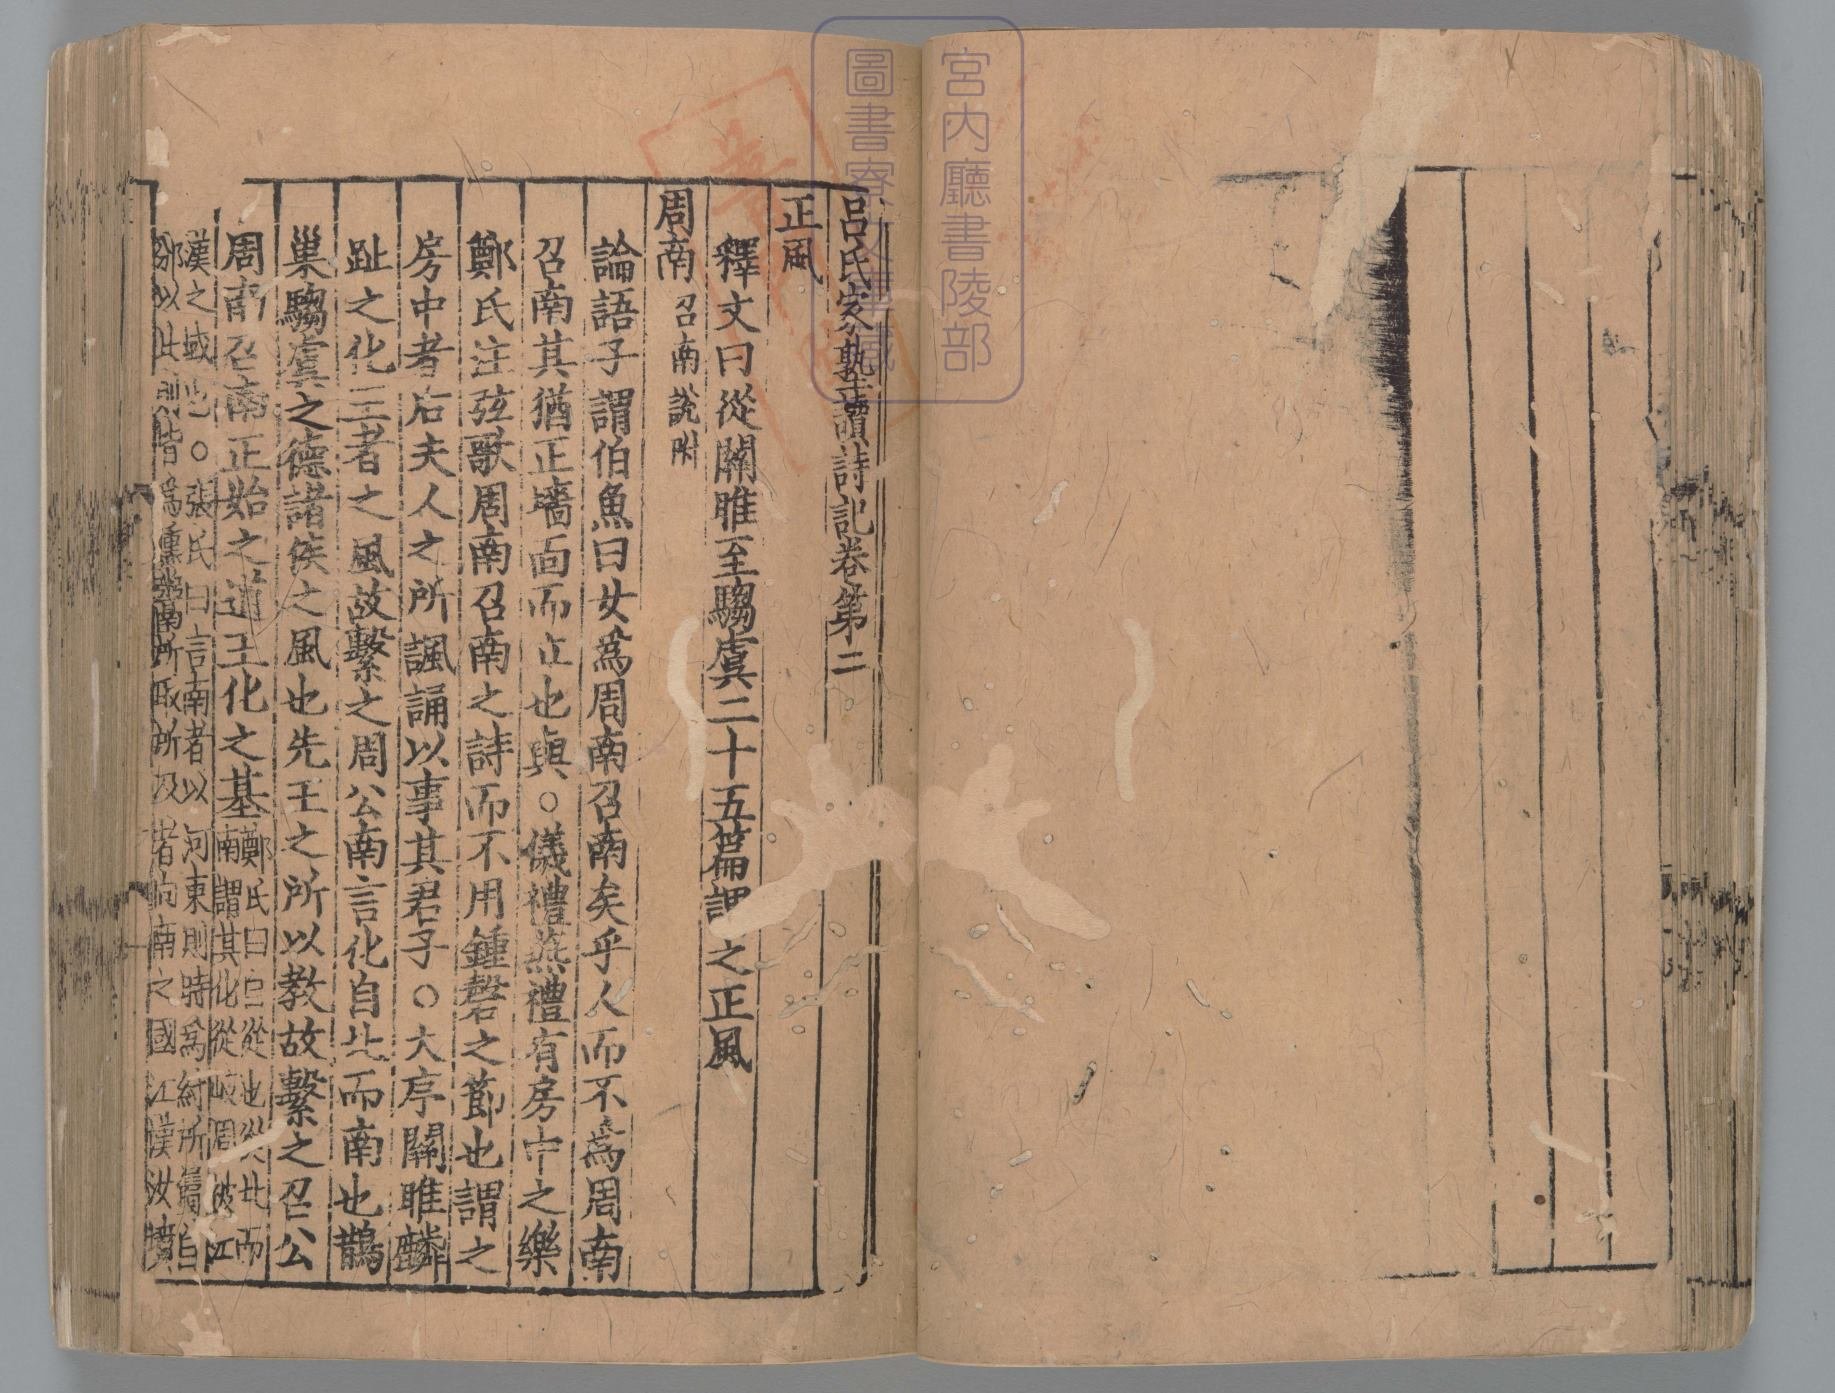 宮内廳書陵部
圖書寮文庫蔵
呂氏家塾讀詩記卷第二
正風
釋文曰從關雎至騶虞二十五篇謂之正風
周南召南說附
論語子謂伯魚曰女爲周南召南矣乎人而不爲周南
召南其猶正墻面而立也與○儀禮燕禮有房中之樂
鄭氏注弦歌周南召南之詩而不用鍾磬之節也謂之
房中者后夫人之所諷誦以事其君子○大序關雎麟
趾之化王者之風故繫之周公南言化自北而南也鵲
巢騶虞之德諸侯之風也先王之所以教故繫之召公
周南召南正始之道王化之基
鄭氏曰自從也從北而
南謂其化從岐周被江
漢之域也○張氏曰言南者以河東則時爲紂所屬自
邠以北則皆爲獯鬻所取所及者向南之國江漢汝墳